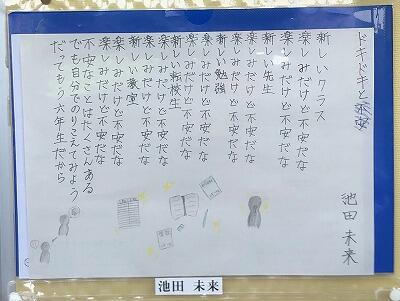 ドキドキと不安
池田未来
新しいクラス
楽しみだけど不安だな
楽しみだけど不安だな
新しい先生
楽しみだけど不安だな
新しい勉強
楽しみだけど不安だな
新しい転校生
楽しみだけど不安だな
新しい教室
楽しみだけど不安だな
楽しみだけど不安だな
不安なことはたくさんある
でも自分でのりこえてみよう
だってもう六年生だから
池田 未来